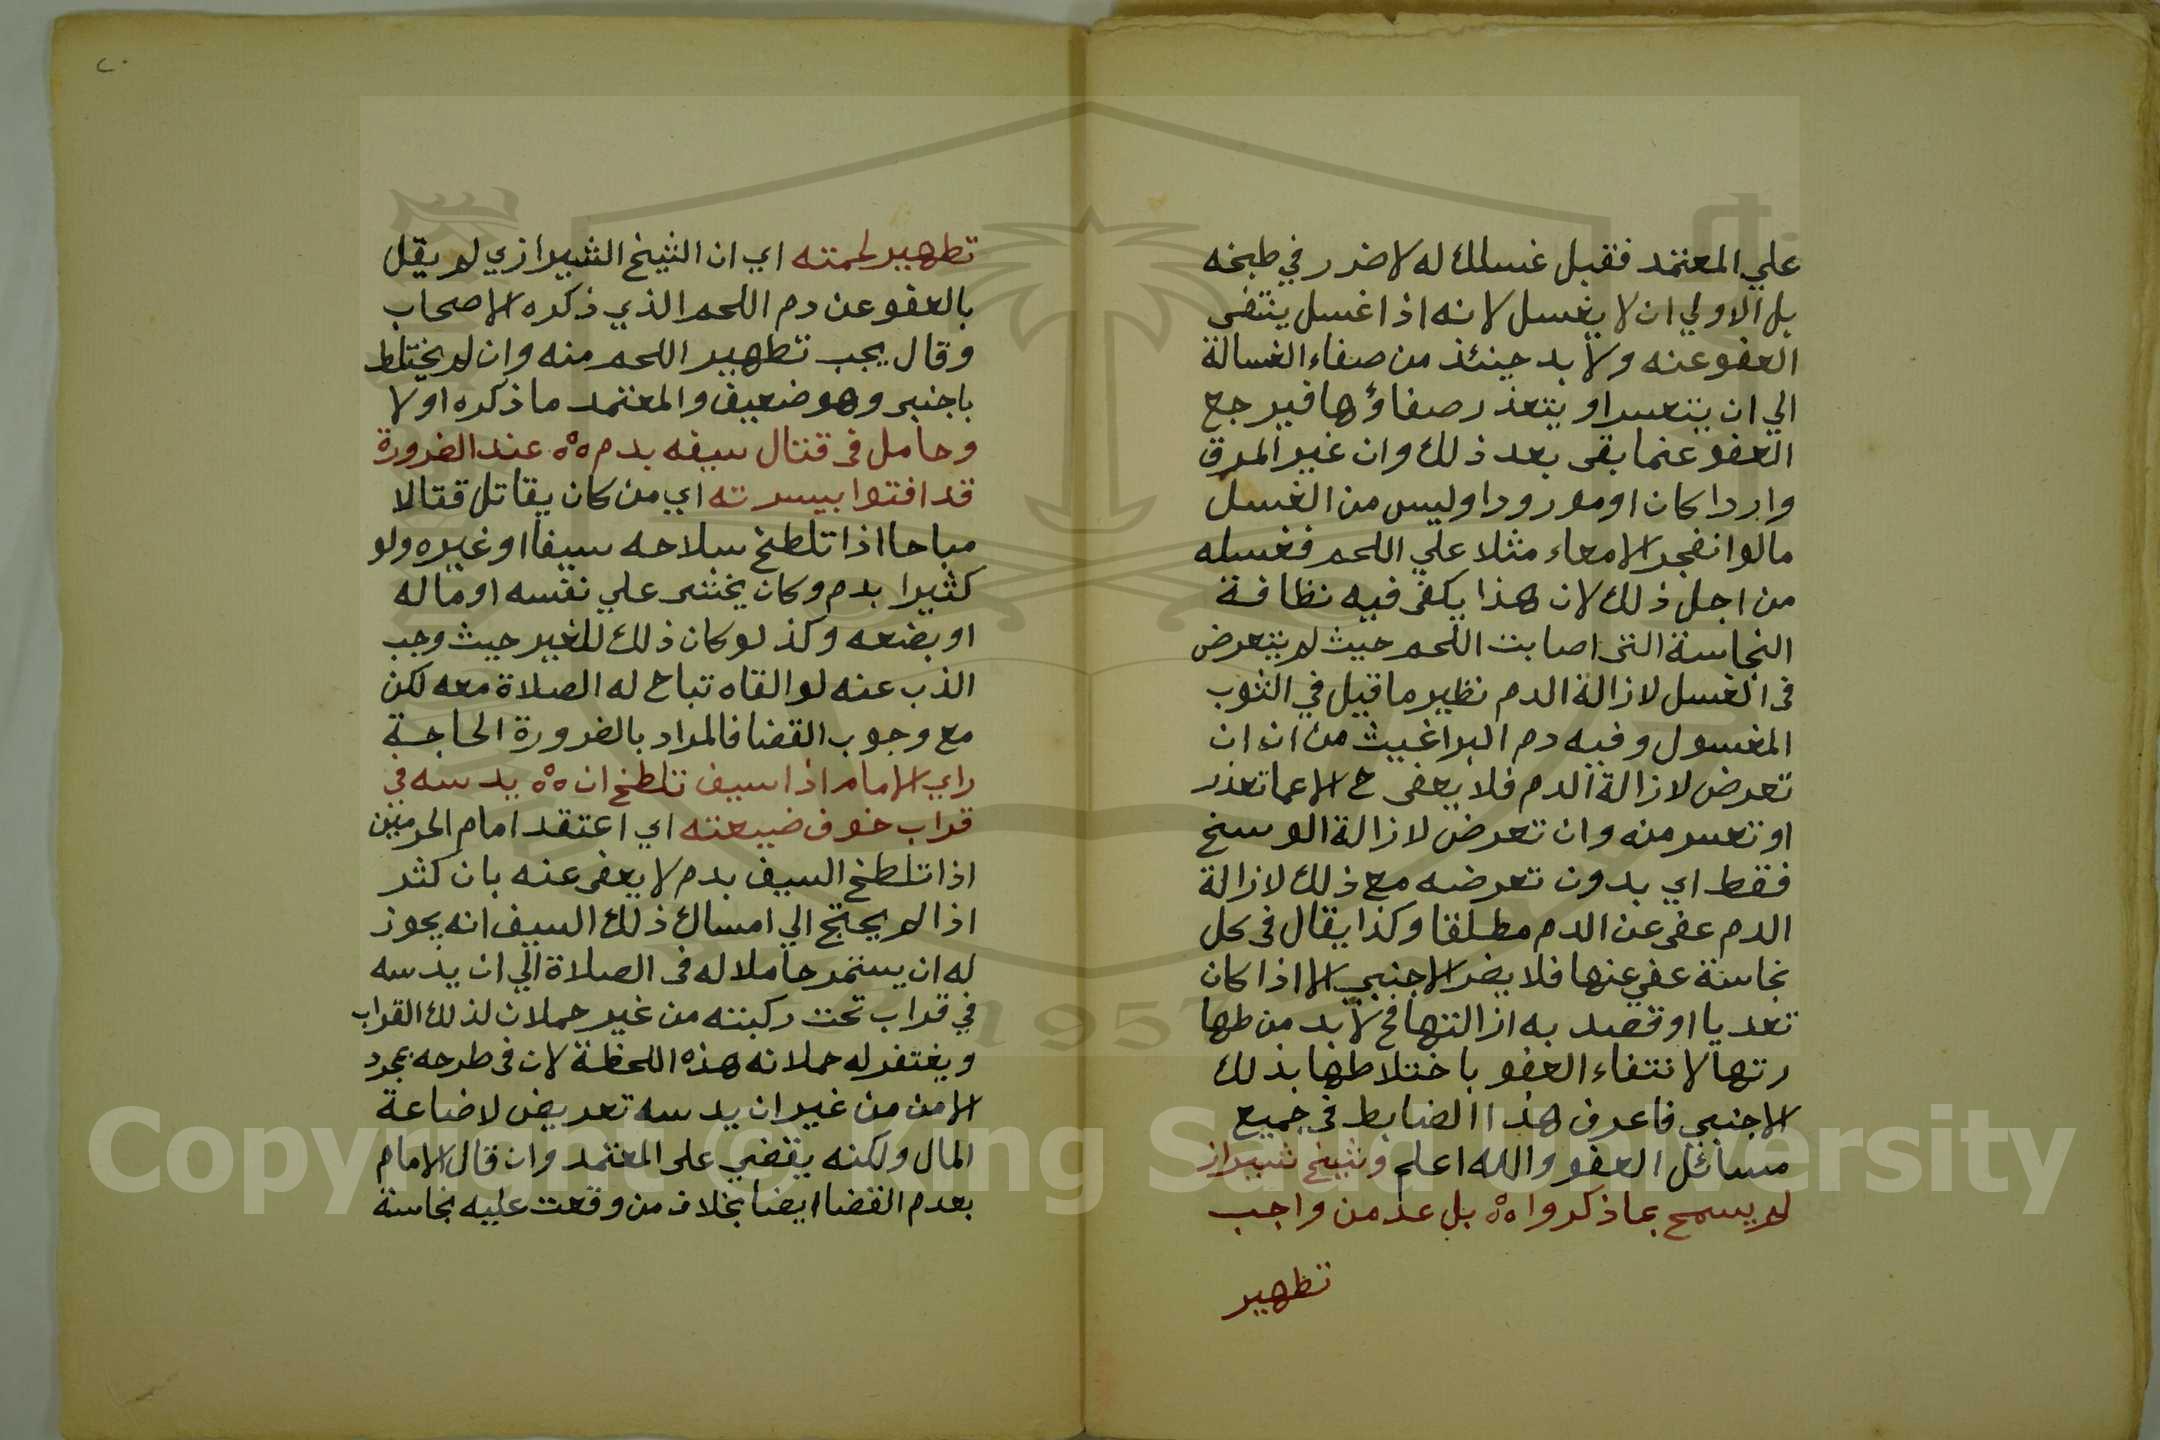 علي المعتمد فقبل غسلك له لا ضرر في طبخه
بل الاولي ان لا يغسل لانه اذا غسل ينتفى
العفو عنه ولا بد حينئذ من صفاء الغسالة
الي ان يتعسر او يتعذر صفاؤها فيرجع
العفو عنما بقى بعد ذلك وان غير المرق
واردا كان او مورودا وليس من الغسل
مالو انفجر الامعاء مثلا علي اللحم فغسله
من اجل ذلك لان هذا يكفى فيه نظافة
النجاسة التى اصابت اللحم حيث لم يتعرض
فى الغسل لازالة الدم نظير ما قيل في الثوب
المغسول وفيه دم البراغيث من ان ان
تعرض لازالة الدم فلا يعفى ح الا عما تعذر
او تعسر منه وان تعرض لازالة الوسخ
فقط اي بدون تعرضه مع ذلك لازالة
الدم عفى عن الدم مطلقا وكذا يقال فى كل
نجاسة عفي عنها فلا يضر الاجنبي الا اذا كان
تعديا او قصد به ازالتها فح لا بد من طها
رتها لانتفاء العفو باختلاطها بذلك
الاجنبي فاعرف هذا الضابط في جميع
مسائل العفو والله اعلم وشيخ شيراز
لم يسمح بما ذكروا ٥٥ بل عد من واجب
تطهير
٢٠
تطهير لحمته اي ان الشيخ الشيرازي لم يقل
بالعفو عن دم اللحم الذي ذكره الاصحاب
وقال يجب تطهير اللحم منه وان لم يختلط
باجنبى وهو ضعيف والمعتمد ما ذكره اولا
وحامل فى قتال سيفه بدم ٥٥ عند الضرورة
قد افتوا بيسرته اي من كان يقاتل قتالا
مباحا اذا تلطخ سلاحه سيفا او غيره ولو
كثيرا بدم وكان يخشى علي نفسه او ماله
او بضعه وكذ لو كان ذلك للغير حيث وجب
الذب عنه لو القاه تباح له الصلاة معه لكن
مع وجوب القضا فالمراد بالضرورة الحاجة
راي الامام اذا سيف تلطخ ان ٥٥ يدسه في
قراب خوف ضيعته اي اعتقد امام الحرمين
اذا تلطخ السيف بدم لا يعفى عنه بان كثر
اذا لم يحتج الي امساك ذلك السيف انه يجوز
له ان يستمر حاملا له فى الصلاة الي ان يدسه
في قراب تحت ركبته من غير حملان لذلك القراب
ويغتفر له حملانه هذه اللحظة لان فى طرحه بمجرد
الامن من غير ان يدسه تعريض لاضاعة
المال ولكنه يقضي على المعتمد وان قال الامام
بعدم القضا ايضا بخلاف من وقعت عليه نجاسة
1957
Copyright © King Saud University